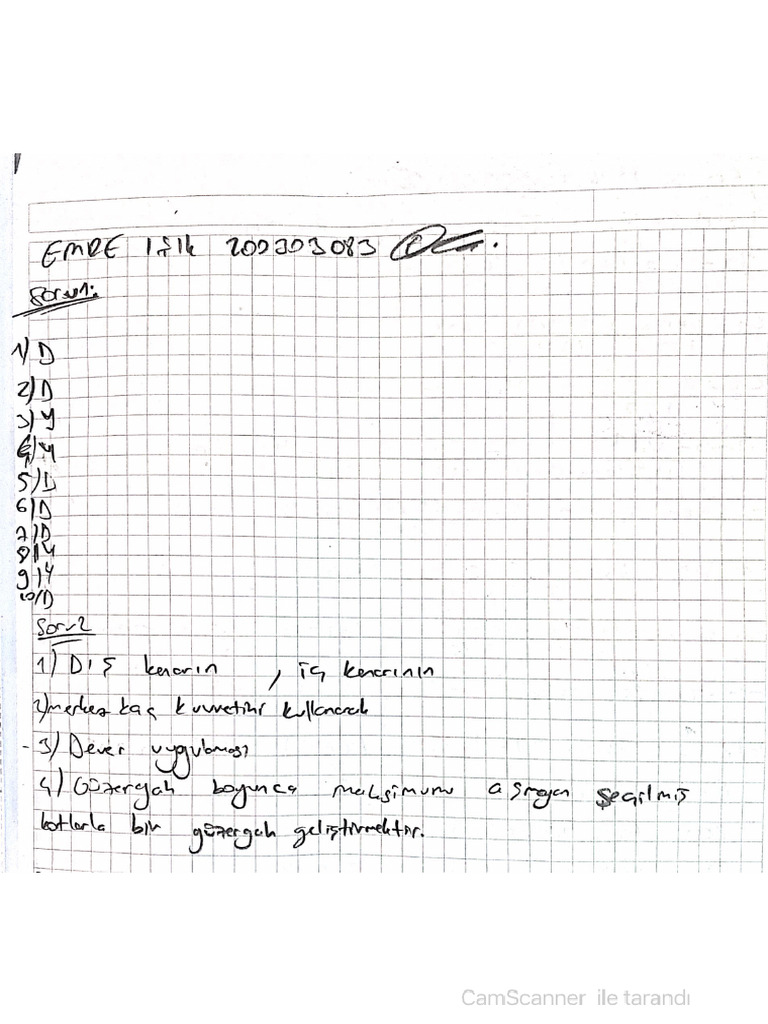 EMRE IŞIK 200303083
Soru1:
1) D
2) D
3) Y
4) Y
5) D
6) D
7) D
8) Y
9) Y
10) D
Soru2
1) Dış kenarın , iç kenarının
2) merkez kaç kuvvetini kullanarak
3) Dever uygulaması
4) Güzergah boyunca maksimumu aşmayan seçilmiş
kotlarla bir güzergah geliştirmektir.
CamScanner ile tarandı